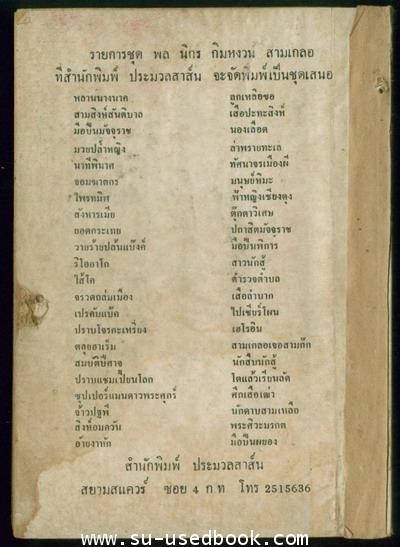 รายการชุด พล นิกร กิมหงวน สามเกลอ
ที่สำนักพิมพ์ ประมวลสาส์น จะจัดพิมพ์เป็นชุดเสนอ
หลานนางนาค
สามสิงห์สันติบาล
มือปืนมัจจุราช
มวยปล้ำหญิง
นาทีพินาศ
จอมฆาตกร
ไพรทมิฬ
สังหารเมีย
ยอดกระเทย
วายร้ายปล้นแบ๊งค์
ริโออาโก
ไส้โค
จรวดถล่มเมือง
เปรคัมแบ๊ค
ปราบโจรกะเหรี่ยง
ตลุยฮาเร็ม
สมบัติปีศาจ
ปราบแชมเปี้ยนโลก
ซุปเปอร์แมนดาวพระศุกร์
จ้าวปฐพี
สิงห์อมควัน
อ้ายงาหัก
ลูกเหลือขอ
เสือปะทะสิงห์
น้องเลือด
ล่าพรายทะเล
ทัศนาจรเมืองผี
มนุษย์หิมะ
ฟ้าหญิงเชียงตุง
ตุ๊กตาวิเศษ
ปถาสิตมัจจุราช
มือปืนพิการ
สาวนักสู้
ตำรวจตำบล
เสือลำบาก
ไปเซียร์โผน
เฮโรอีน
สามเกลอเจอสามก๊ก
นักสืบนักสู้
โตแล้วเรียนลัด
ศึกเสือเฒ่า
นักดาบสามเหลือ
พระศิวะมรกต
มือปืนผยอง
สำนักพิมพ์ ประมวลสาส์น
สยามสแควร์ ซอย 4 ก.ท. โทร 2515636
www.su-usedbook.com